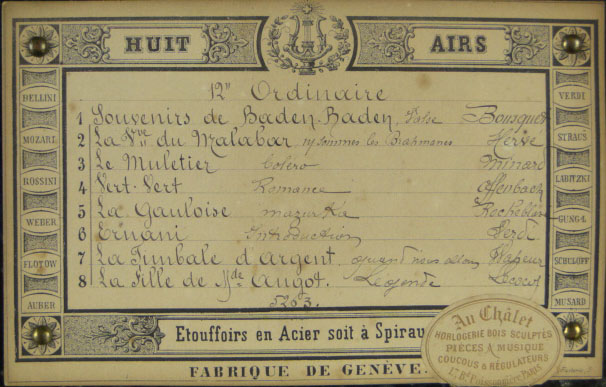 HUIT AIRS
12" Ordinaire
1 Souvenirs de Baden-Baden, Valse Bousquet
2 La Vve du Malabar, ns sommes les Brahmanes Hervé
3 Le Muletier Bolero Minard
4 Vert-Vert Romance Offenbach
5 La Gauloise mazurka
6 Ernani Introduction Verdi
7 La Timbale d'Argent, quand nous allons Vasseur
8 La Fille de Mde Angot. Légende Lecocq
BELLINI
MOZART
ROSSINI
WEBER
FLOTOW
AUBER
VERDI
STRAUS
LABITZKI
GUNGL
SCHULOFF
MUSARD
Etouffoirs en Acier soit à Spirau
FABRIQUE DE GENÈVE.
Au Châlet
HORLOGERIE BOIS SCULPTÉS
PIÈCES A MUSIQUE
COUCOUS & RÉGULATEURS
PARIS